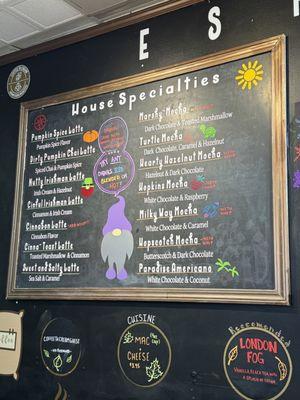 ES
House Specialties
Pumpkin Spice Latte
Pumpkin Spice Flavor
Dirty Pumpkin Chai Latte
Spiced Chai & Pumpkin Spice
Nutty Irishman Latte
Irish Cream & Hazelnut
Cinful Irishman Latte
Cinnamon & Irish Cream
Cinnabon Latte
Cinnamon Flavor
Cinna-Toast Latte
Toasted Marshmallow & Cinnamon
Sweet and Salty Latte
Sea Salt & Caramel
TRY ANY
DRINKS
BLENDED OR
HOT!
Marshy Mocha
Dark Chocolate & Toasted Marshmallow
Turtle Mocha
Dark Chocolate, Caramel & Hazelnut
Hearty Hazelnut Mocha
Hazelnut & Dark Chocolate
Hopkins Mocha
White Chocolate & Raspberry
Milky Way Mocha
White Chocolate & Caramel
Hopscotch Mocha
Butterscotch & Dark Chocolate
Paradise Americano
White Chocolate & Coconut
CUISINE
MAC
&
CHEESE
Recomended
LONDON
FOG